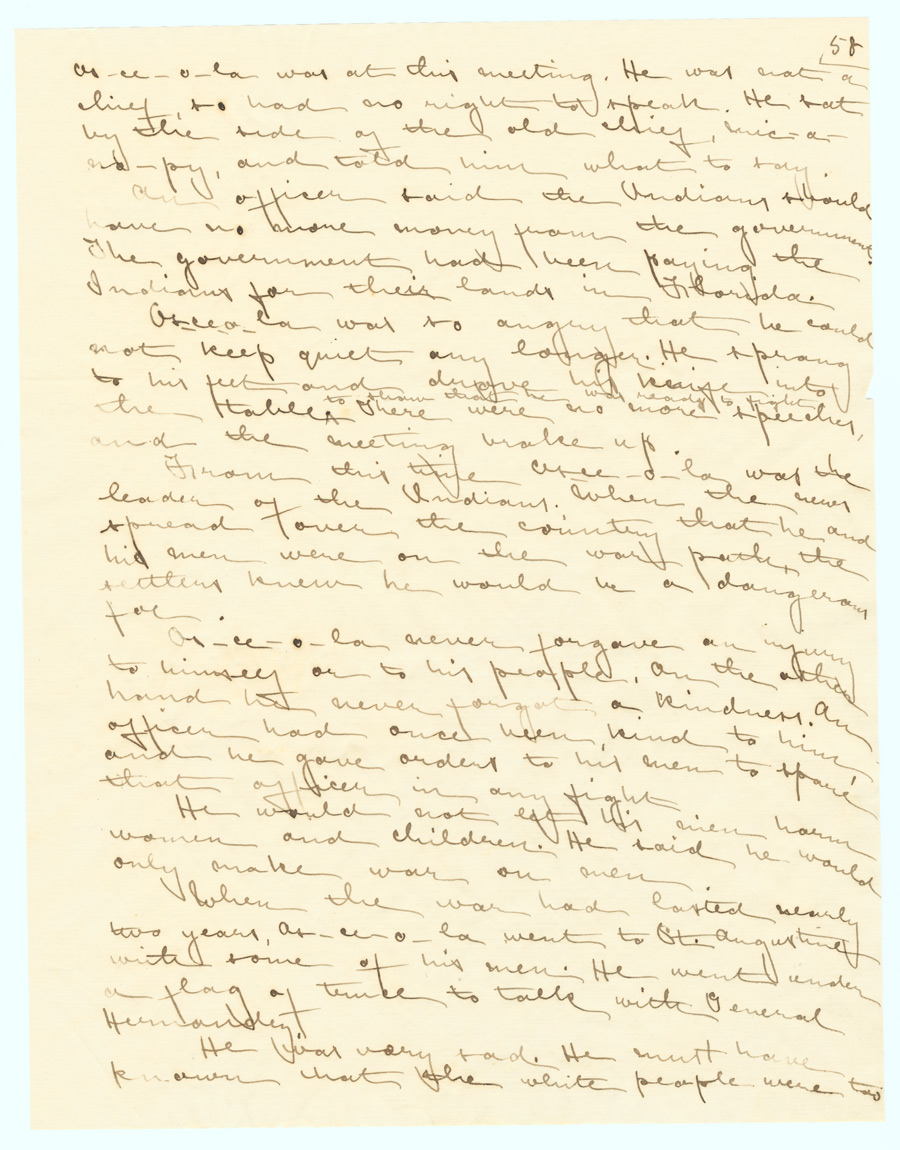 58
Os-ce-o-la was at this meeting. He was not a
chief, so had no right to speak. He sat
by the side of the old chief, Mic-a-
no-py, and told him what to say.
An officer said the Indians should
have no more money from the government.
The government had been paying the
Indians for their lands in Florida.
Os-ce-o-la was so angry that he could
not keep quiet any longer. He sprang
to his feet and drove his knife into
to show that he was ready to fight
the table. There were no more speeches,
and the meeting broke up.
From this time Os-ce-o-la was the
leader of the Indians. When the news
spread over the country that he and
his men were on the war path, the
settlers knew he would be a dangerous
foe.
Os-ce-o-la never forgave an injury
to himself or to his people. On the other
hand he never forgot a kindness. An
officer had once been kind to him,
and he gave orders to his men to spare
that officer in any fight
He would not let his men harm
women and children. He said he would
only make war on men
When the war had lasted nearly
two years, Os-ce-o-la went to St. Augustine
with some of his men. He went under
a flag of truce to talk with General
Hernandez
He was very sad. He must have
known that the white people were too